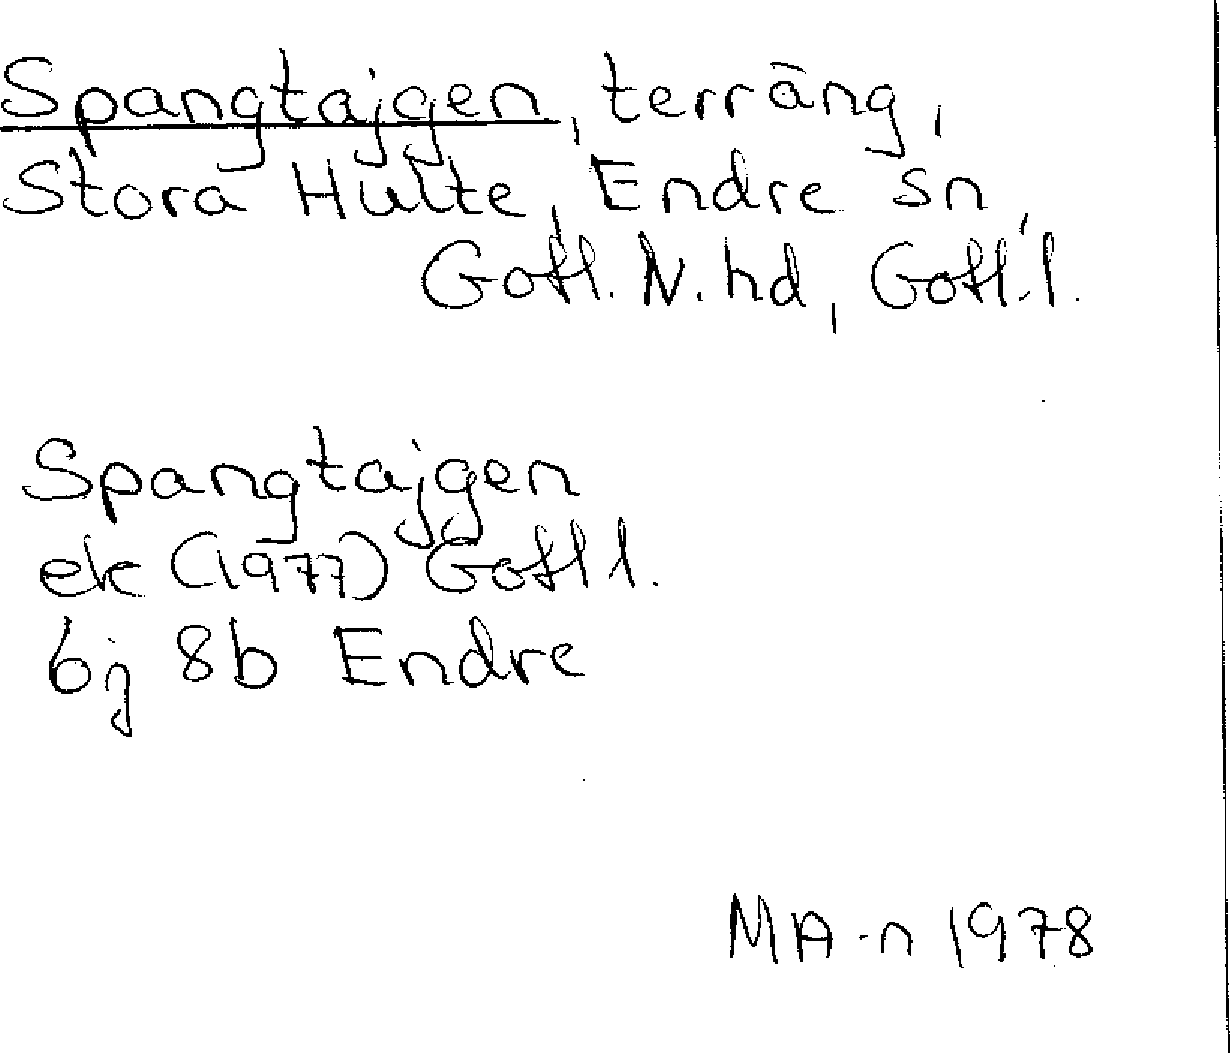 Spangtajgen, terräng,
Stora Hulte, Endre sn,
Gotl. N. hd, Gotl. l.
Spangtajgen
ek (1977) Gotl l.
6j 8b Endre
MA-n 1978